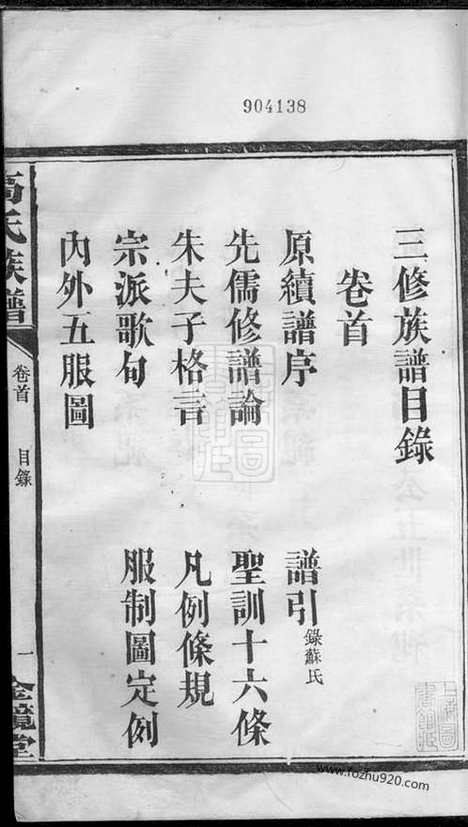 904138
三修族譜目錄
卷首
原續譜序
譜引錄蘇氏
先儒修譜論
聖訓十六條
朱夫子格言
凡例條規
宗派歌句
服制圖定例
內外五服圖
氏族譜
卷首
目錄
一
金鏡堂
www.fozhu920.com